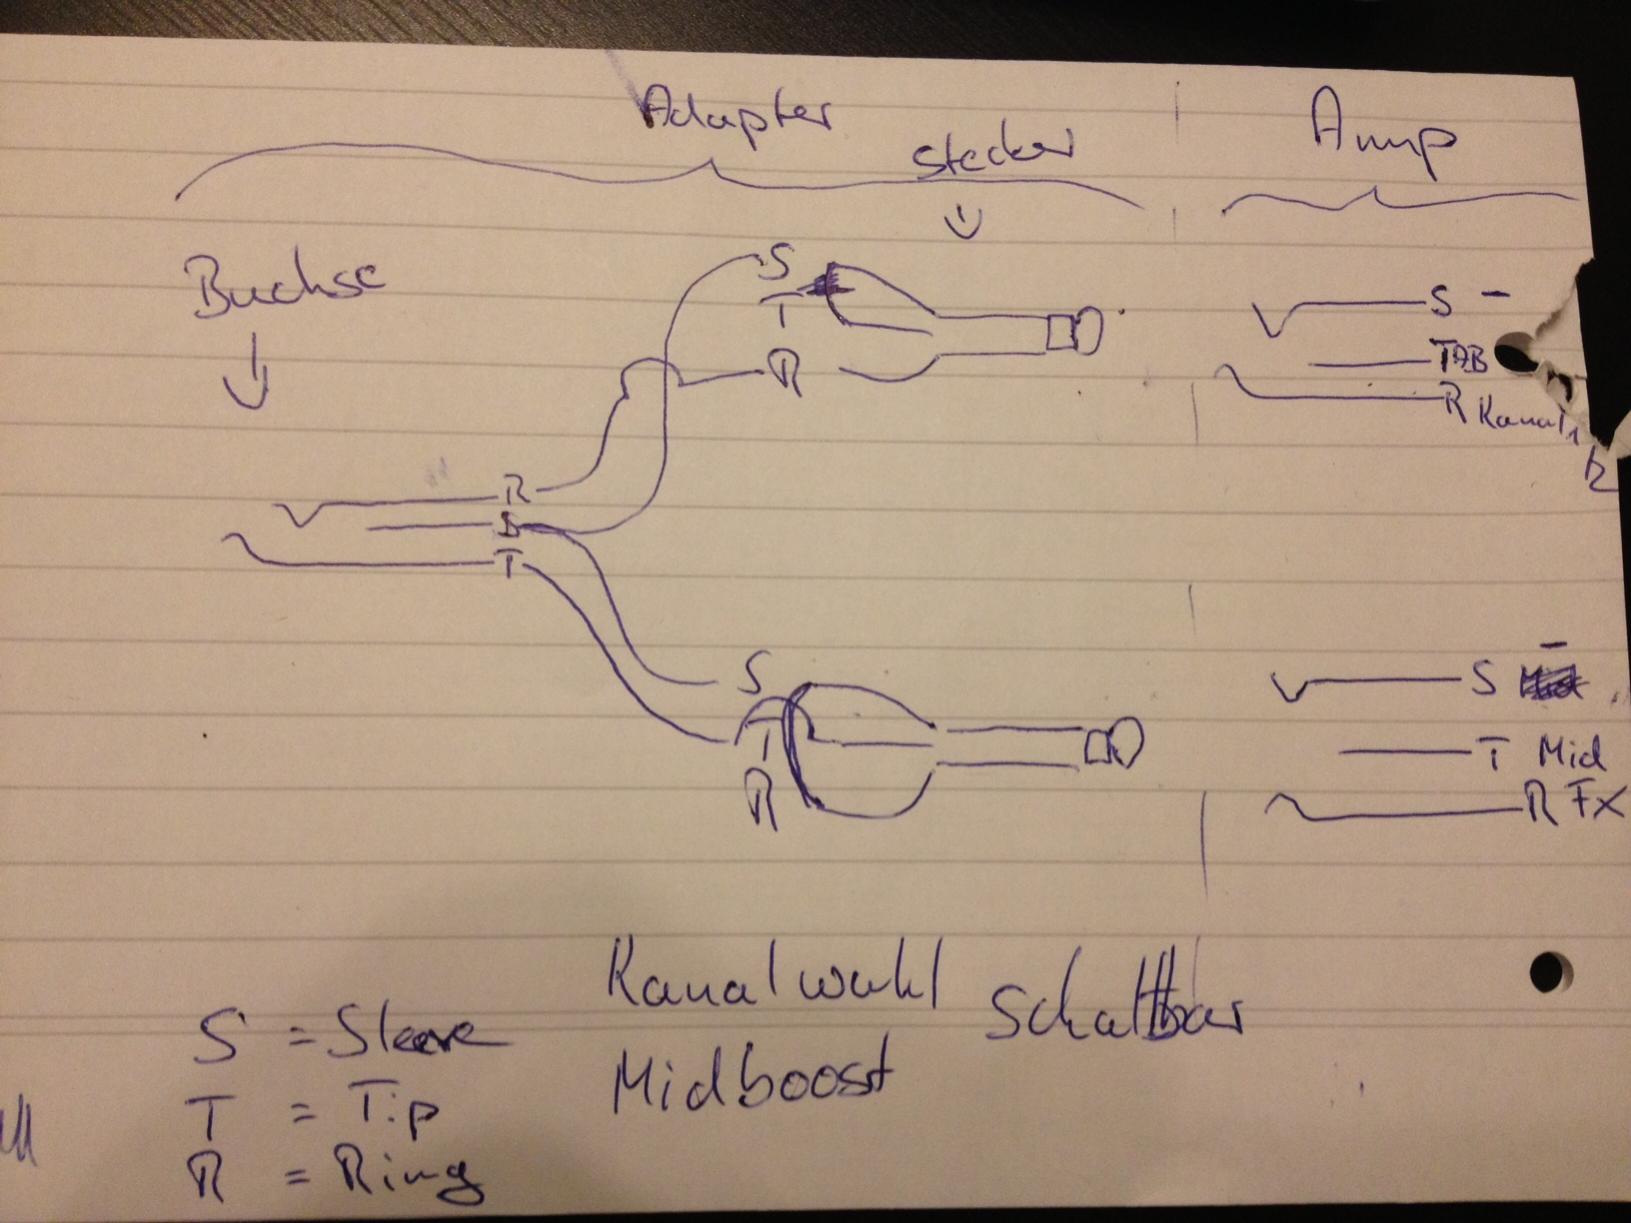 Adapter
Stecker
Amp
Buchse
S
T
R
S -
R Kanal 1
2
R
S
T
S
T
R
S -
T Mid
R FX
Kanalwahl
Schaltbar
Midboost
S = Sleeve
T = Tip
R = Ring